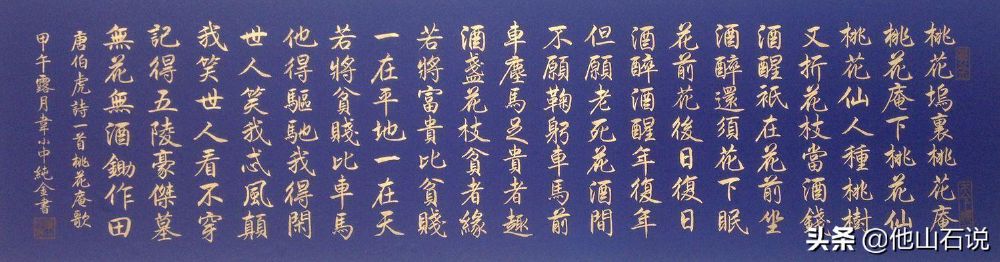 桃花塢裏桃花庵
桃花庵下桃花仙
桃花仙人種桃樹
又折花枝當酒錢
酒醒衹在花前坐
酒醉還須花下眠
花前花後日復日
酒醉酒醒年復年
但願老死花酒間
不願鞠躬車馬前
車塵馬足貴者趣
酒盞花枝貧者緣
若將富貴比貧賤
一在平地一在天
若將貧賤比車馬
他得驅馳我得閑
世人笑我忒風顛
我笑世人看不穿
記得五陵豪傑墓
無花無酒鋤作田
唐伯虎詩一首桃花庵歌
甲午露月韋小中純金書
头条 @他山石说